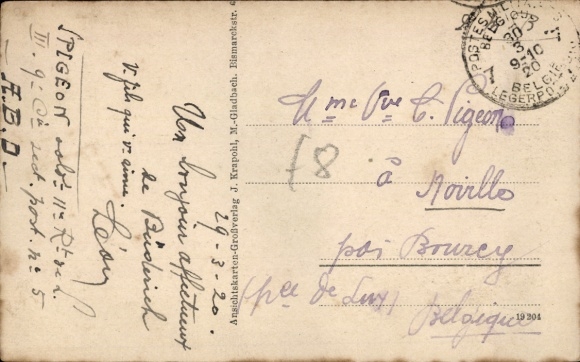 SPIGEON solt 11e Rt de L.
III. 9e Cie sect. post. no 5
A.B.O.
29-3-20.
Un bonjour affectueux
de Büderich
v. fils qui v. aime.
Léon
Ansichtskarten-Großverlag J. Krapohl, M.-Gladbach. Bismarckstr. 6
POSTES MILITAIRES
BELGIQUE
30
3
9-10
20
7 7
BELGIE
LEGERPOST
Mme Vve C. Pigeon
à
Noville
par Bourcy
(Pce de Lux)
Belgique
78
19204